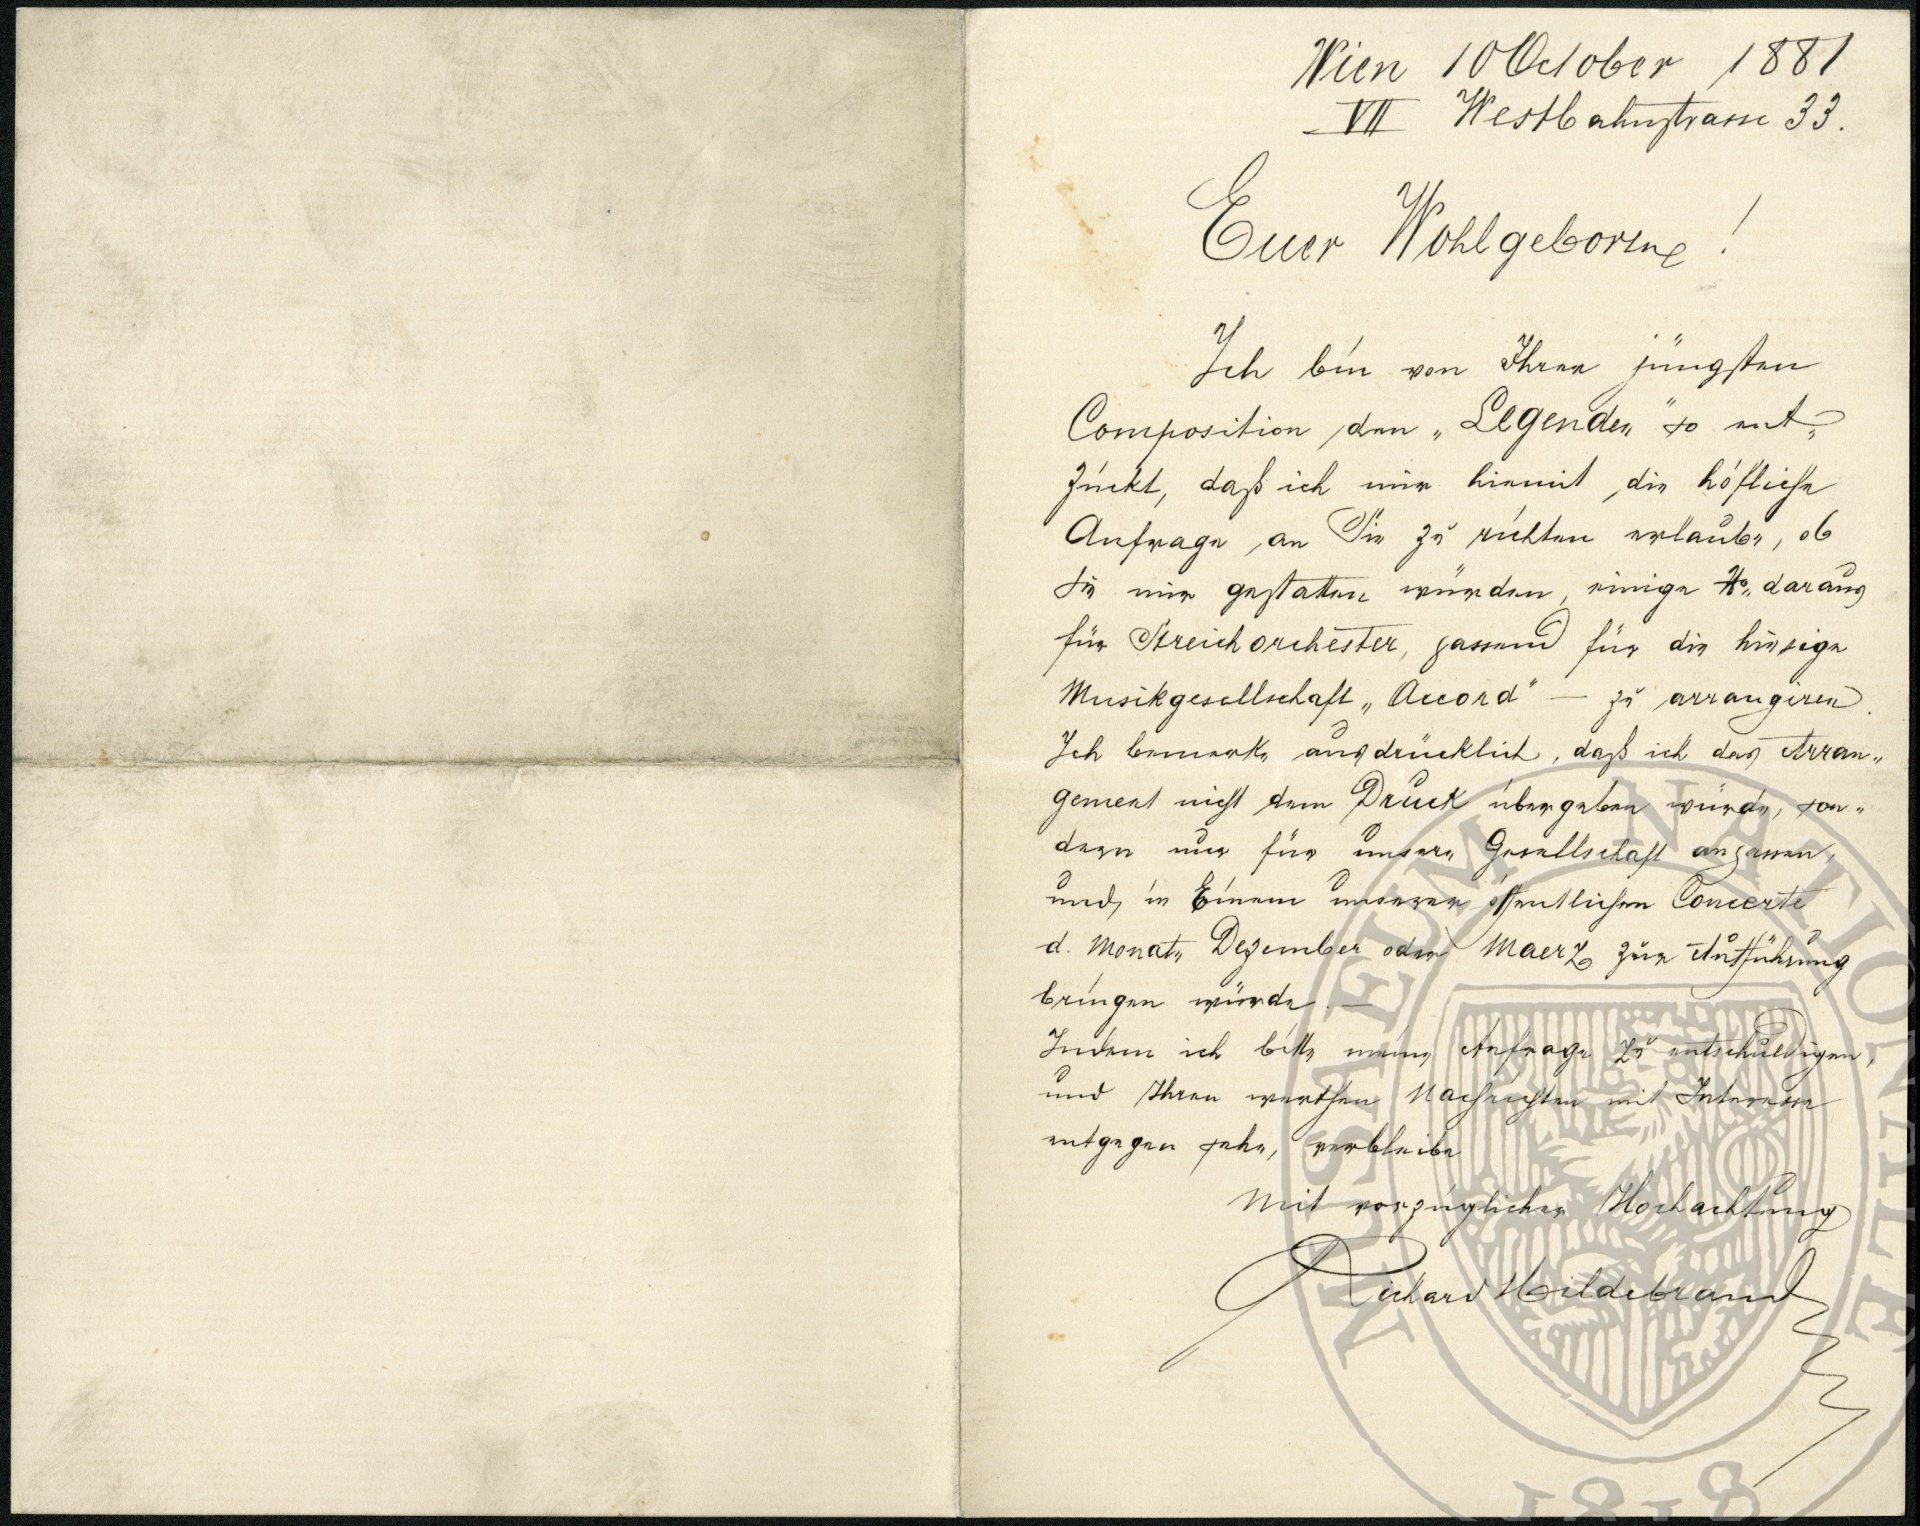 Wien 10 October 1881
VII Westbahnstrasse 33.
Euer Wohlgeboren!
Ich bin von Ihrer jüngsten
Composition den „Legenden" so ent„
zückt, daß ich mir hiemit die höfliche
Anfrage an Sie zu richten erlaube, ob
Sie mir gestatten würden, einige No. daraus
für Streichorchester, passend für die hiesige
Musikgesellschaft „Accord" — zu arrangiren.
Ich bemerke ausdrücklich, daß ich das Arran„
gement nicht dem Druck übergeben würde, son„
dern nur für unsere Gesellschaft anpassen,
und in Einem unserer öffentlichen Concerte
d. Monate Dezember oder Maerz zur Aufführung
bringen würde. —
Indem ich bitte meine Anfrage zu entschuldigen,
und Ihren werthen Nachrichten mit Interesse
entgegen sehe, verbleibe
Mit vorzüglicher Hochachtung
Richard Hildebrand
MUSAEUM NATIONALE
1818